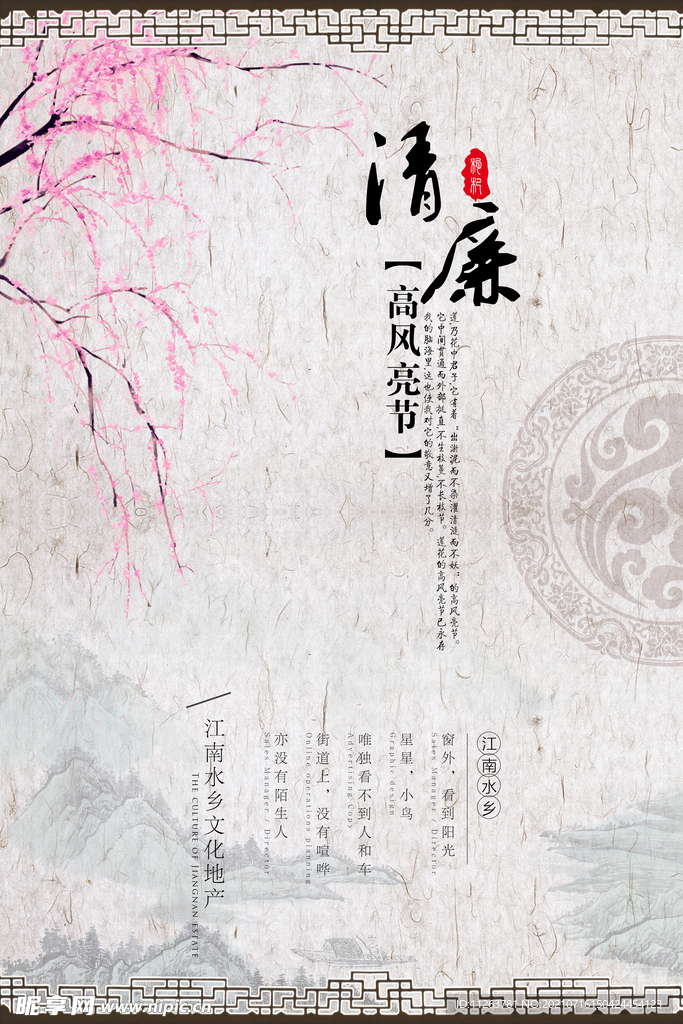 清廉
枸杞
【高风亮节】
莲,乃花中君子,它有着“出淤泥而不染,濯清涟而不妖”的高风亮节。
它中间贯通而外部挺直,不生枝蔓,不长枝节。莲花的高风亮节已永存
我的脑海里,这也使我对它的敬意又增了几分。
江南水乡
窗外，看到阳光
Sales Manager / Director
星星，小鸟
Graphic design
唯独看不到人和车
Advertising Copy
街道上，没有喧哗
Online operations planning
亦没有陌生人
Sales Manager / Director
江南水乡文化地产
THE CULTURE OF JIANGNAN ESTATE
昵享网 www.nipic.cn
ID:11263781 NO:20210716150424454123